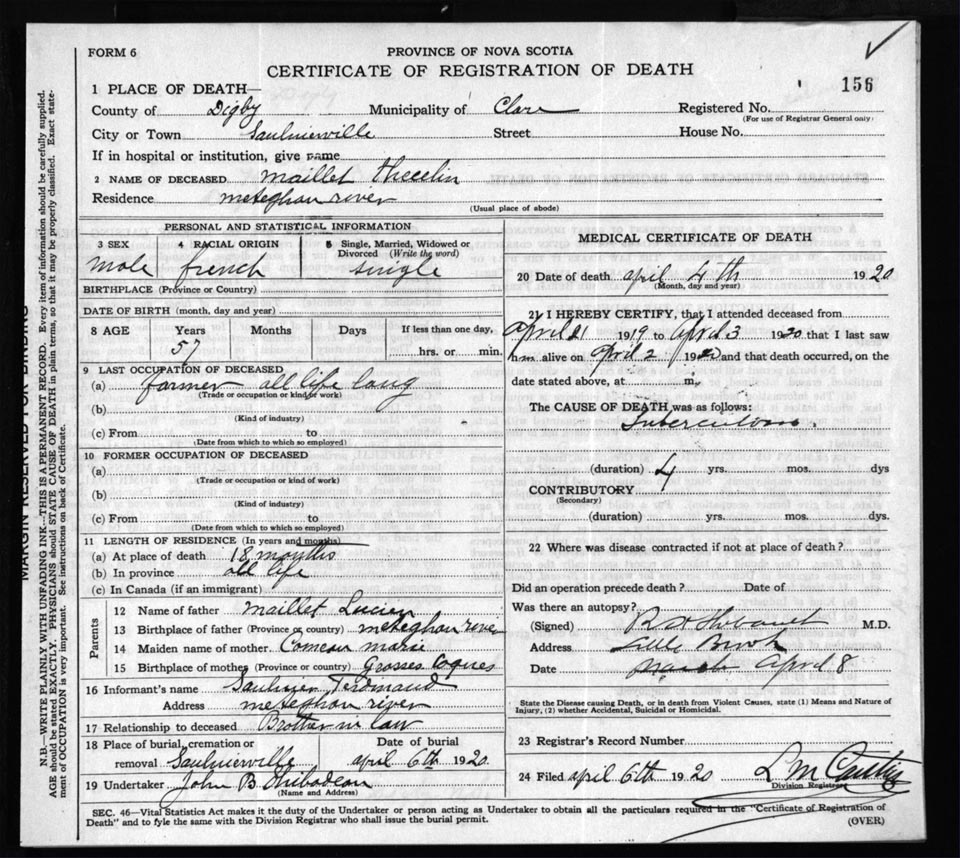 FORM 6
PROVINCE OF NOVA SCOTIA
CERTIFICATE OF REGISTRATION OF DEATH
156
1 PLACE OF DEATH—
County of Digby Municipality of Clare Registered No.
(For use of Registrar General only)
City or Town Saulnierville Street House No.
If in hospital or institution, give name
2 NAME OF DECEASED maillet thecelin
Residence meteghan river
(Usual place of abode)
PERSONAL AND STATISTICAL INFORMATION
3 SEX 4 RACIAL ORIGIN 5 Single, Married, Widowed or Divorced (Write the word)
male french single
BIRTHPLACE (Province or Country)
DATE OF BIRTH (month, day and year)
8 AGE Years Months Days If less than one day,
57 hrs. or min.
9 LAST OCCUPATION OF DECEASED
(a) farmer all life long
(Trade or occupation or kind of work)
(b)
(Kind of industry)
(c) From to
(Date from which to which so employed)
10 FORMER OCCUPATION OF DECEASED
(a)
(Trade or occupation or kind of work)
(b)
(Kind of industry)
(c) From to
(Date from which to which so employed)
11 LENGTH OF RESIDENCE (In years and months)
(a) At place of death 18 months
(b) In province all life
(c) In Canada (if an immigrant)
Parents
12 Name of father maillet Lucien
13 Birthplace of father (Province or country) meteghan river
14 Maiden name of mother Comeau marie
15 Birthplace of mother (Province or country) Grosses Coques
16 Informant's name Saulnier Ferdinand
Address meteghan river
17 Relationship to deceased Brother in law
18 Place of burial, cremation or removal Saulnierville Date of burial april 6th 1920
19 Undertaker John B thibodeau
(Name and Address)
MEDICAL CERTIFICATE OF DEATH
20 Date of death april 4th 1920
(Month, day and year)
21 I HEREBY CERTIFY, that I attended deceased from
april 21 1919 to april 3 1920 that I last saw
him alive on april 2 1920 and that death occurred, on the
date stated above, at m.
The CAUSE OF DEATH was as follows:
Tuberculosis.
(duration) 4 yrs. mos. dys
CONTRIBUTORY
(Secondary)
(duration) yrs. mos. dys.
22 Where was disease contracted if not at place of death?
Did an operation precede death? Date of
Was there an autopsy?
(Signed) M.D.
Address Little Brook
Date april 8
State the Disease causing Death, or in death from Violent Causes, state (1) Means and Nature of Injury, (2) whether Accidental, Suicidal or Homicidal.
23 Registrar's Record Number
24 Filed april 6th 1920
Division Registrar
SEC. 46—Vital Statistics Act makes it the duty of the Undertaker or person acting as Undertaker to obtain all the particulars required in the "Certificate of Registration of
Death" and to fyle the same with the Division Registrar who shall issue the burial permit.
(OVER)
MARGIN RESERVED FOR BINDING
N.B.—WRITE PLAINLY WITH UNFADING INK—THIS IS A PERMANENT RECORD. Every item of information should be carefully supplied.
AGE should be stated EXACTLY. PHYSICIANS should STATE CAUSE OF DEATH in plain terms, so that it may be properly classified. Exact state-
ment of OCCUPATION is very important. See instructions on back of Certificate.